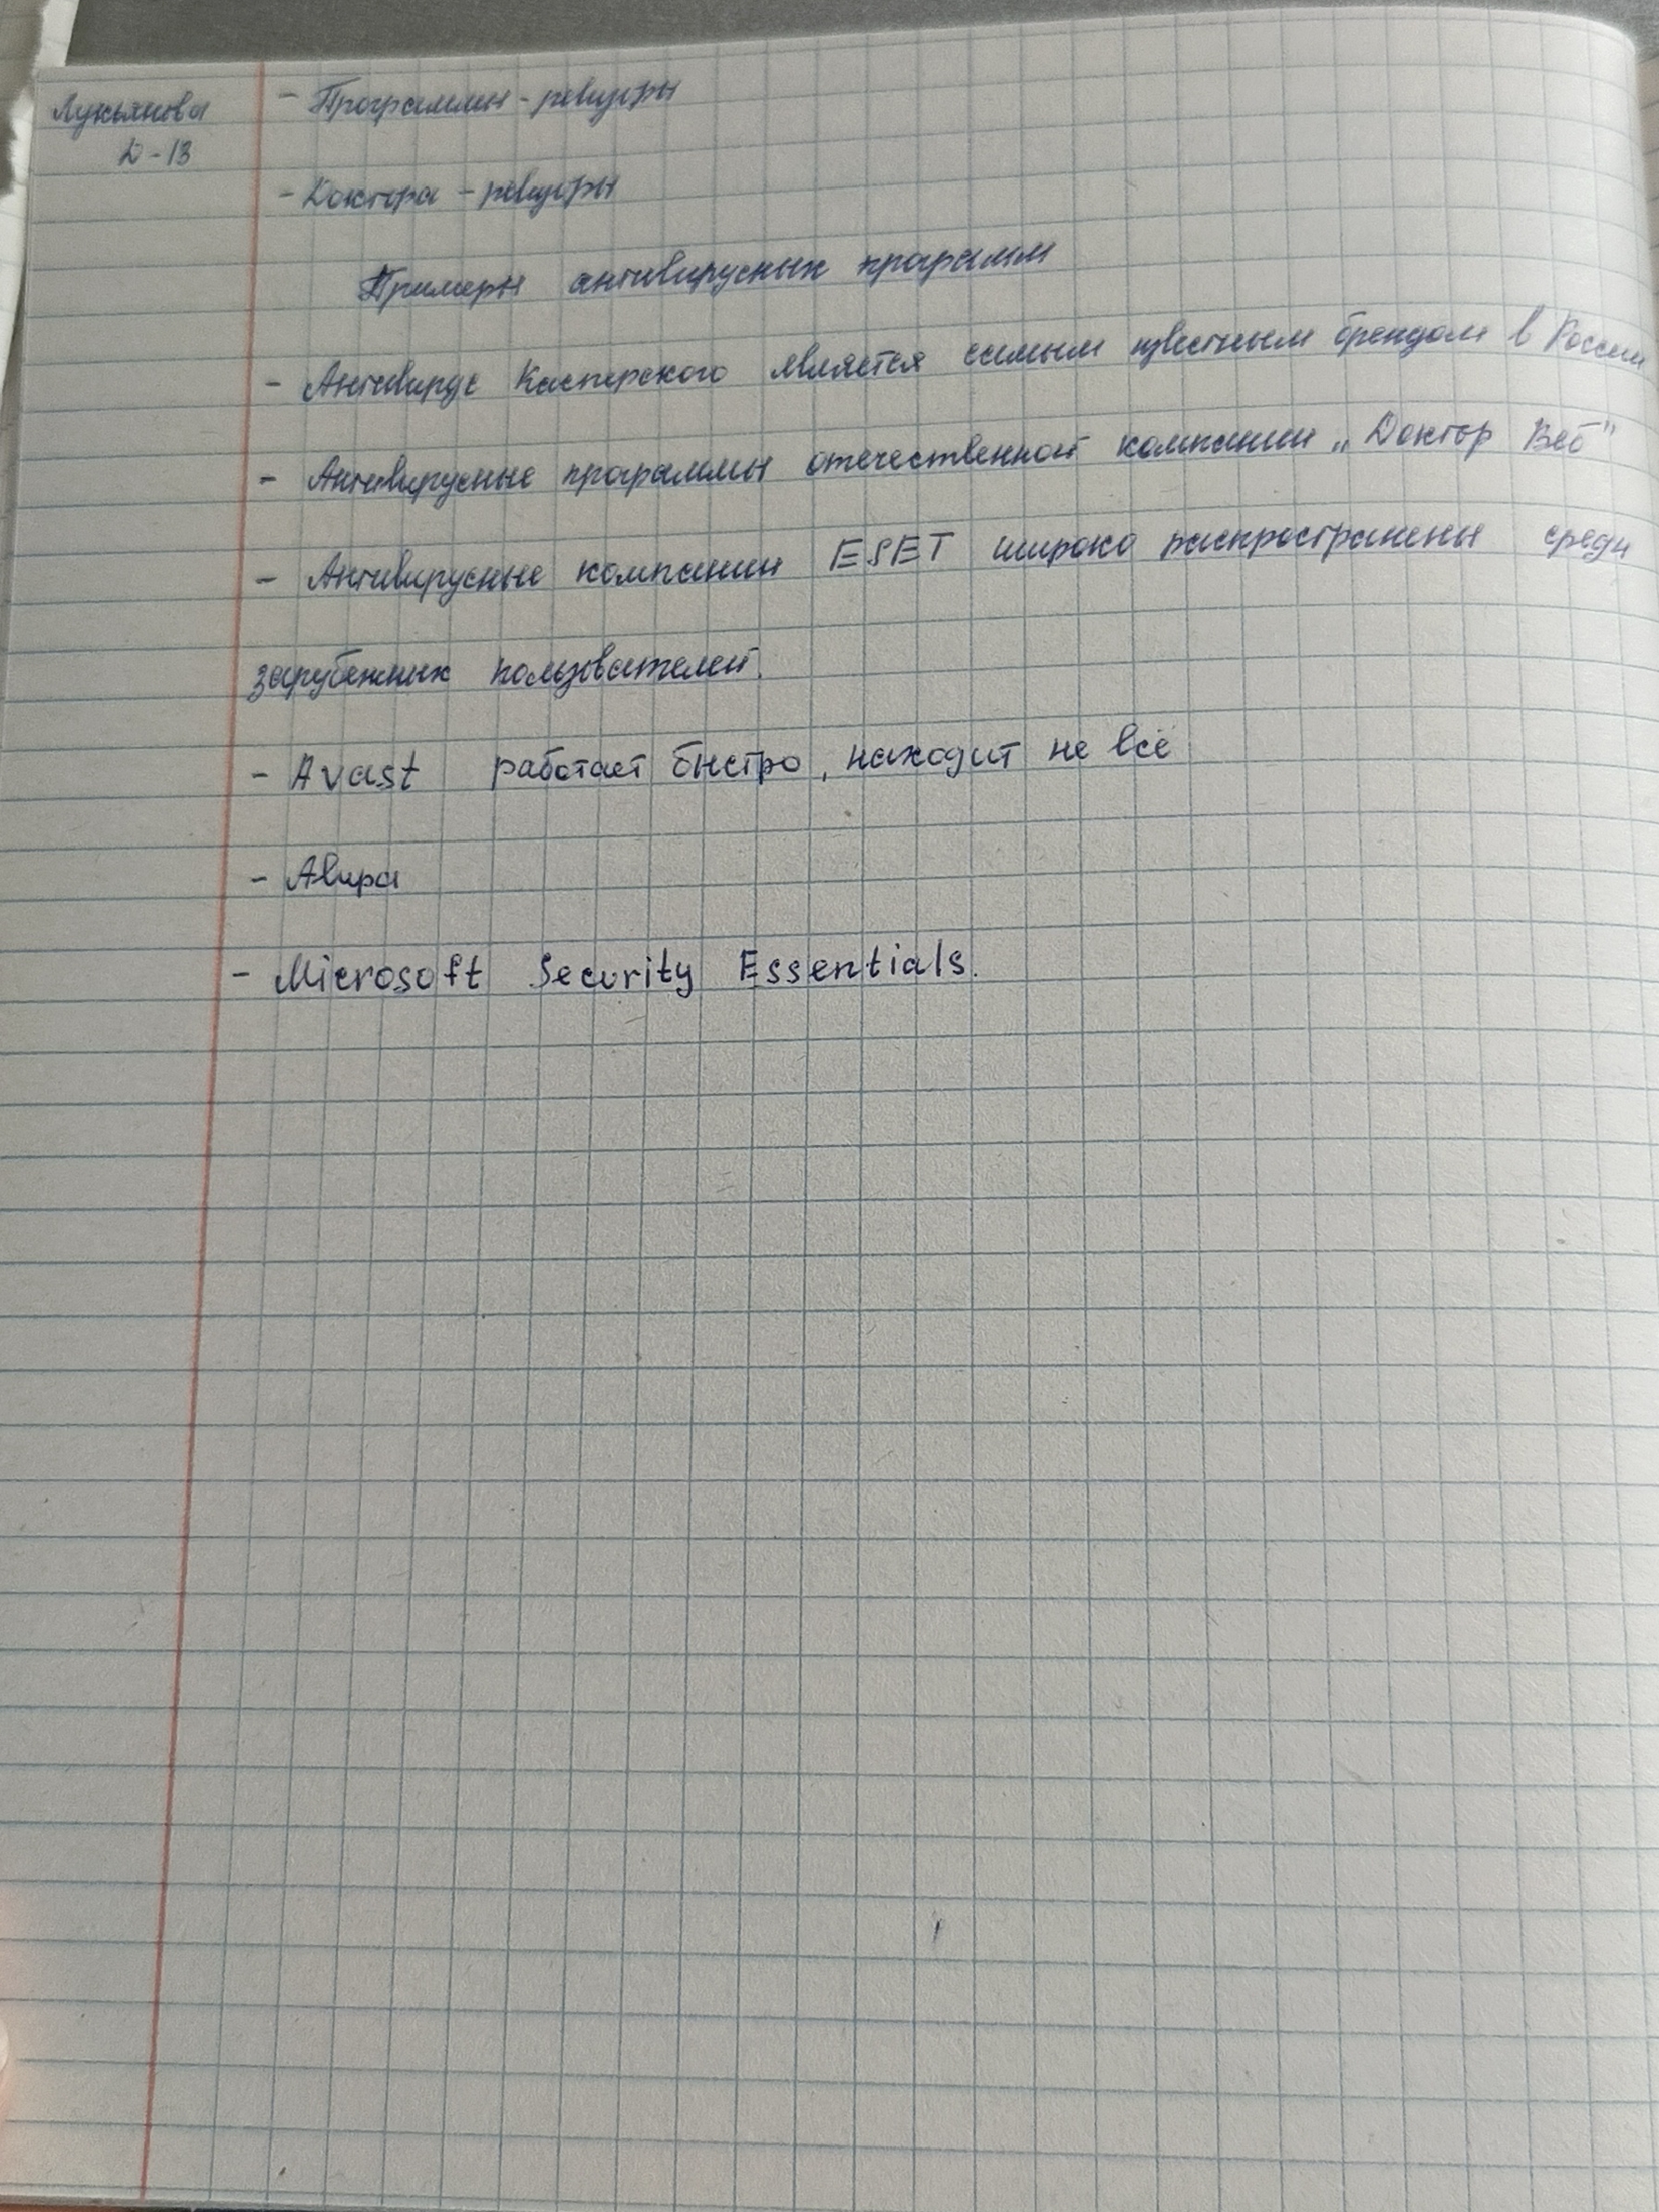 Лукьянова
D-13
- Программы-ревизоры
- Доктора - ревизоры
Примеры антивирусных программ
- Антивирус Касперского является самым известным брендом в России
- Антивирусные программы отечественной компании „Доктор Веб"
- Антивирусные компании ESET широко распространены среди
зарубежных пользователей.
- Avast работает быстро, находит не всё
- Авира
- Microsoft Security Essentials.